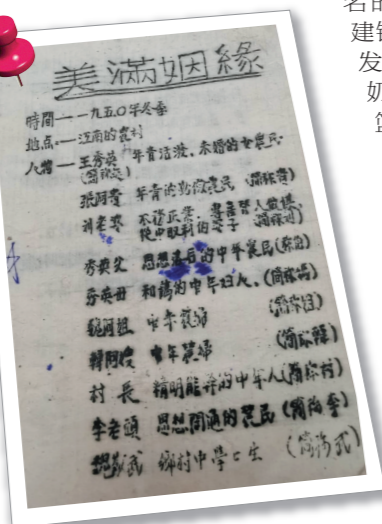 名的
建钱
发
奶
篮
美滿姻緣
時間——一九五〇年冬季
地点——江南的農村
人物——王秀英 年青活潑,未婚的女農民
(簡稱英)
張阿青 年青的勞模農民 (簡稱青)
不務正業,專喜替人做媒,
從中取利的 (簡稱)
秀英父 思想落后的中年農民(簡稱父)
秀英母 和藹的中年妇人(簡稱母)
魏阿姐 中年農婦 (簡稱姐)
韓阿嫂 中年農婦 (簡稱韓)
村長 精明能幹的中年人(簡稱村)
李老頭 思想開通的農民(簡稱李)
魏武 鄉村中學生 (簡稱武)